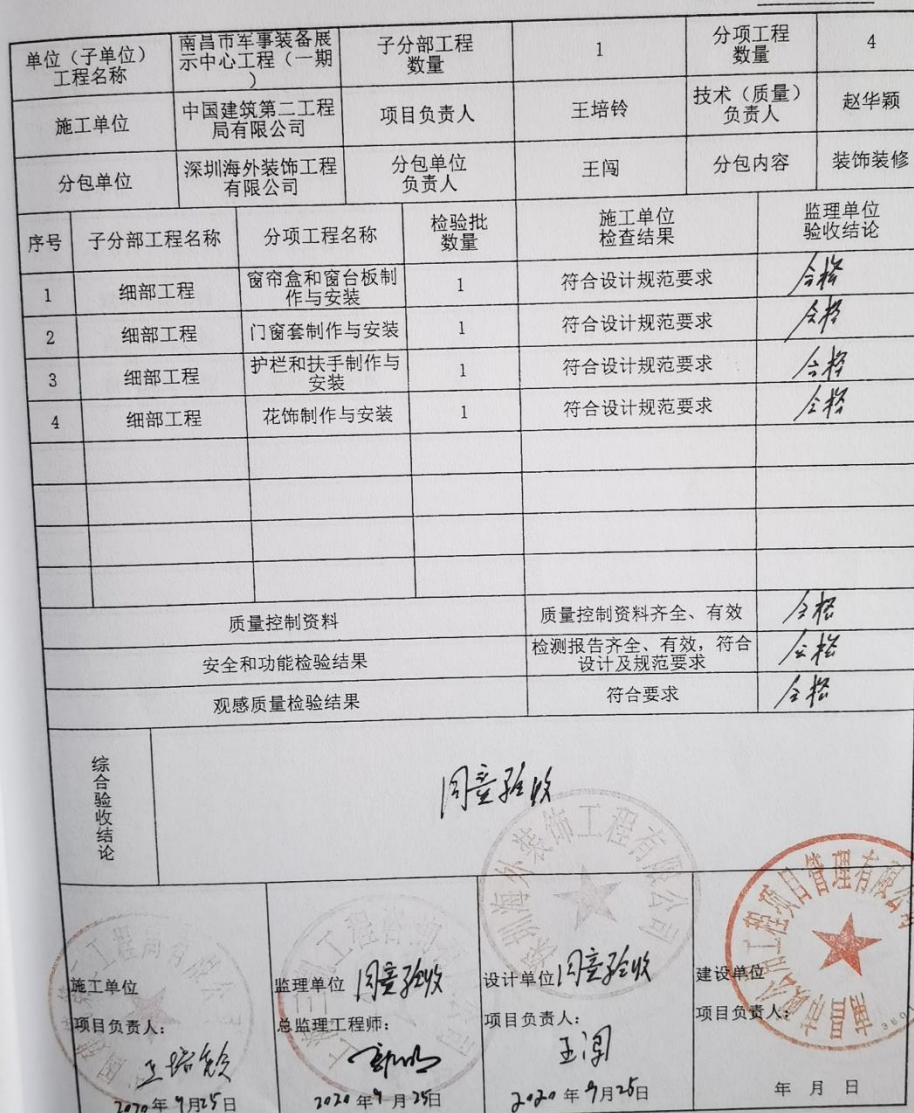 单位（子单位）
工程名称
南昌市军事装备展
示中心工程（一期
）
子分部工程
数量
1
分项工程
数量
4
施工单位
中国建筑第二工程
局有限公司
项目负责人
王培铃
技术（质量）
负责人
赵华颖
分包单位
深圳海外装饰工程
有限公司
分包单位
负责人
王闯
分包内容
装饰装修
序号
子分部工程名称
分项工程名称
检验批
数量
施工单位
检查结果
监理单位
验收结论
1
细部工程
窗帘盒和窗台板制
作与安装
1
符合设计规范要求
合格
2
细部工程
门窗套制作与安装
1
符合设计规范要求
合格
3
细部工程
护栏和扶手制作与
安装
1
符合设计规范要求
合格
4
细部工程
花饰制作与安装
1
符合设计规范要求
合格
质量控制资料
质量控制资料齐全、有效
合格
安全和功能检验结果
检测报告齐全、有效，符合
设计及规范要求
合格
观感质量检验结果
符合要求
合格
综合验收结论
同意验收
深圳海外装饰工程有限公司
施工单位
项目负责人：
王培铃
2020年9月25日
监理单位 同意验收
总监理工程师：
2020年9月25日
设计单位 同意验收
项目负责人：
王闯
2020年9月25日
建设单位
项目负责人：
年 月 日